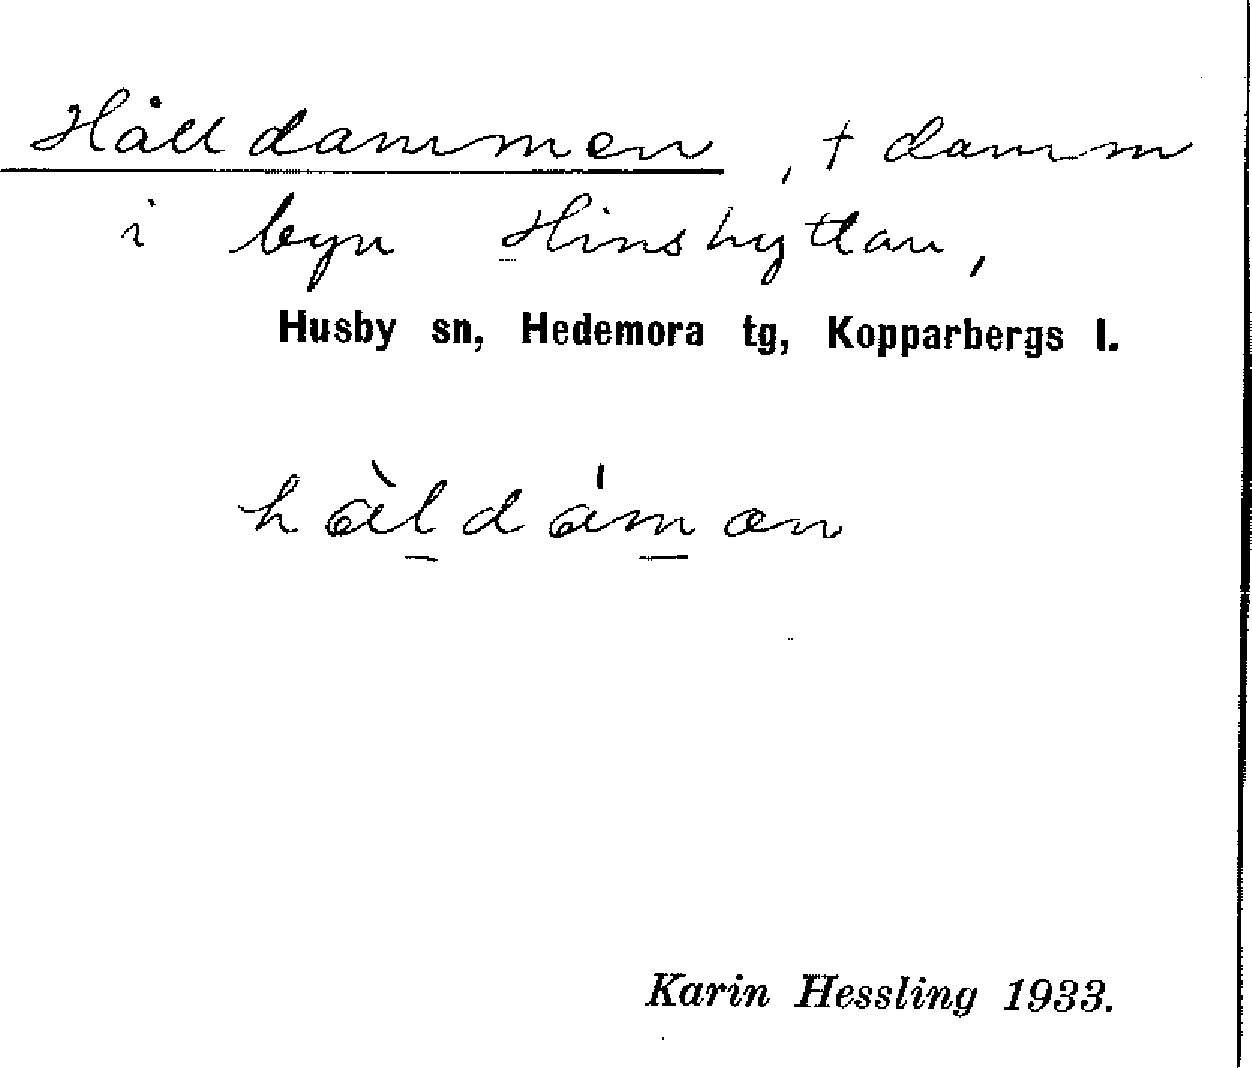 Hålldammen, † damm
i byn Hinshyttan,
Husby sn, Hedemora tg, Kopparbergs l.
hàldámən
Karin Hessling 1933.